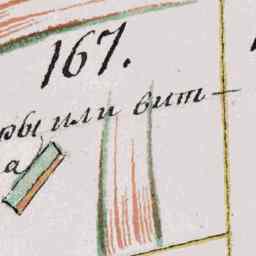 167.
или вит-
а